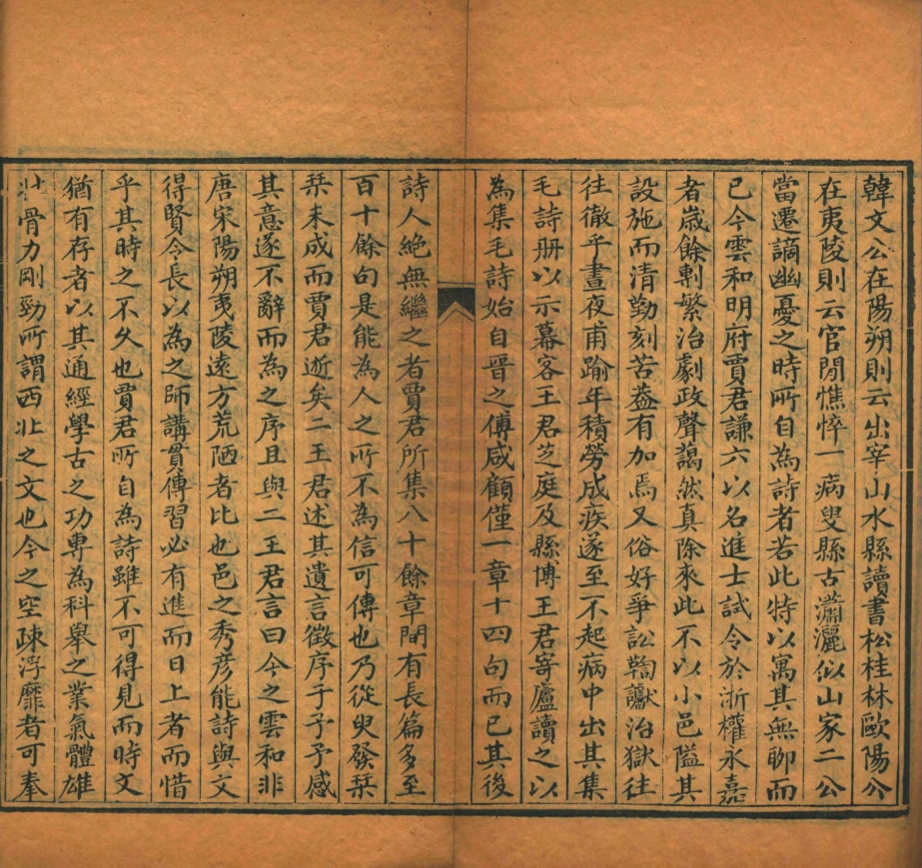 韓文公在陽朔則云出宰山水縣讀書松桂林歐陽公
在夷陵則云官閒憔悴一病叟縣古瀟灑似山家二公
當遷謫幽憂之時所自為詩者若此特以寓其無聊而
已今雲和明府賈君謙六以名進士試令於浙權永嘉
者歲餘剸繁治劇政聲藹然真除來此不以小邑隘其
設施而清勤刻苦葢有加焉又俗好爭訟鞫讞治獄往
往徹乎晝夜甫踰年積勞成疾遂至不起病中出其集
毛詩册以示幕客王君芝庭及縣博王君寄廬讀之以
為集毛詩始自晉之傅咸顧僅一章十四句而已其後
詩人絶無繼之者賈君所集八十餘章閒有長篇多至
百十餘句是能為人之所不為信可傳也乃從臾發棨
棨未成而賈君逝矣二王君述其遺言徵序于予予感
其意遂不辭而為之序且與二王君言曰今之雲和非
唐宋陽朔夷陵遠方荒陋者比也邑之秀彦能詩與文
得賢令長以為之師講貫傳習必有進而日上者而惜
乎其時之不久也賈君所自為詩雖不可得見而時文
猶有存者以其通經學古之功專為科舉之業氣體雄
壯骨力剛勁所謂西北之文也今之空疎浮靡者可奉